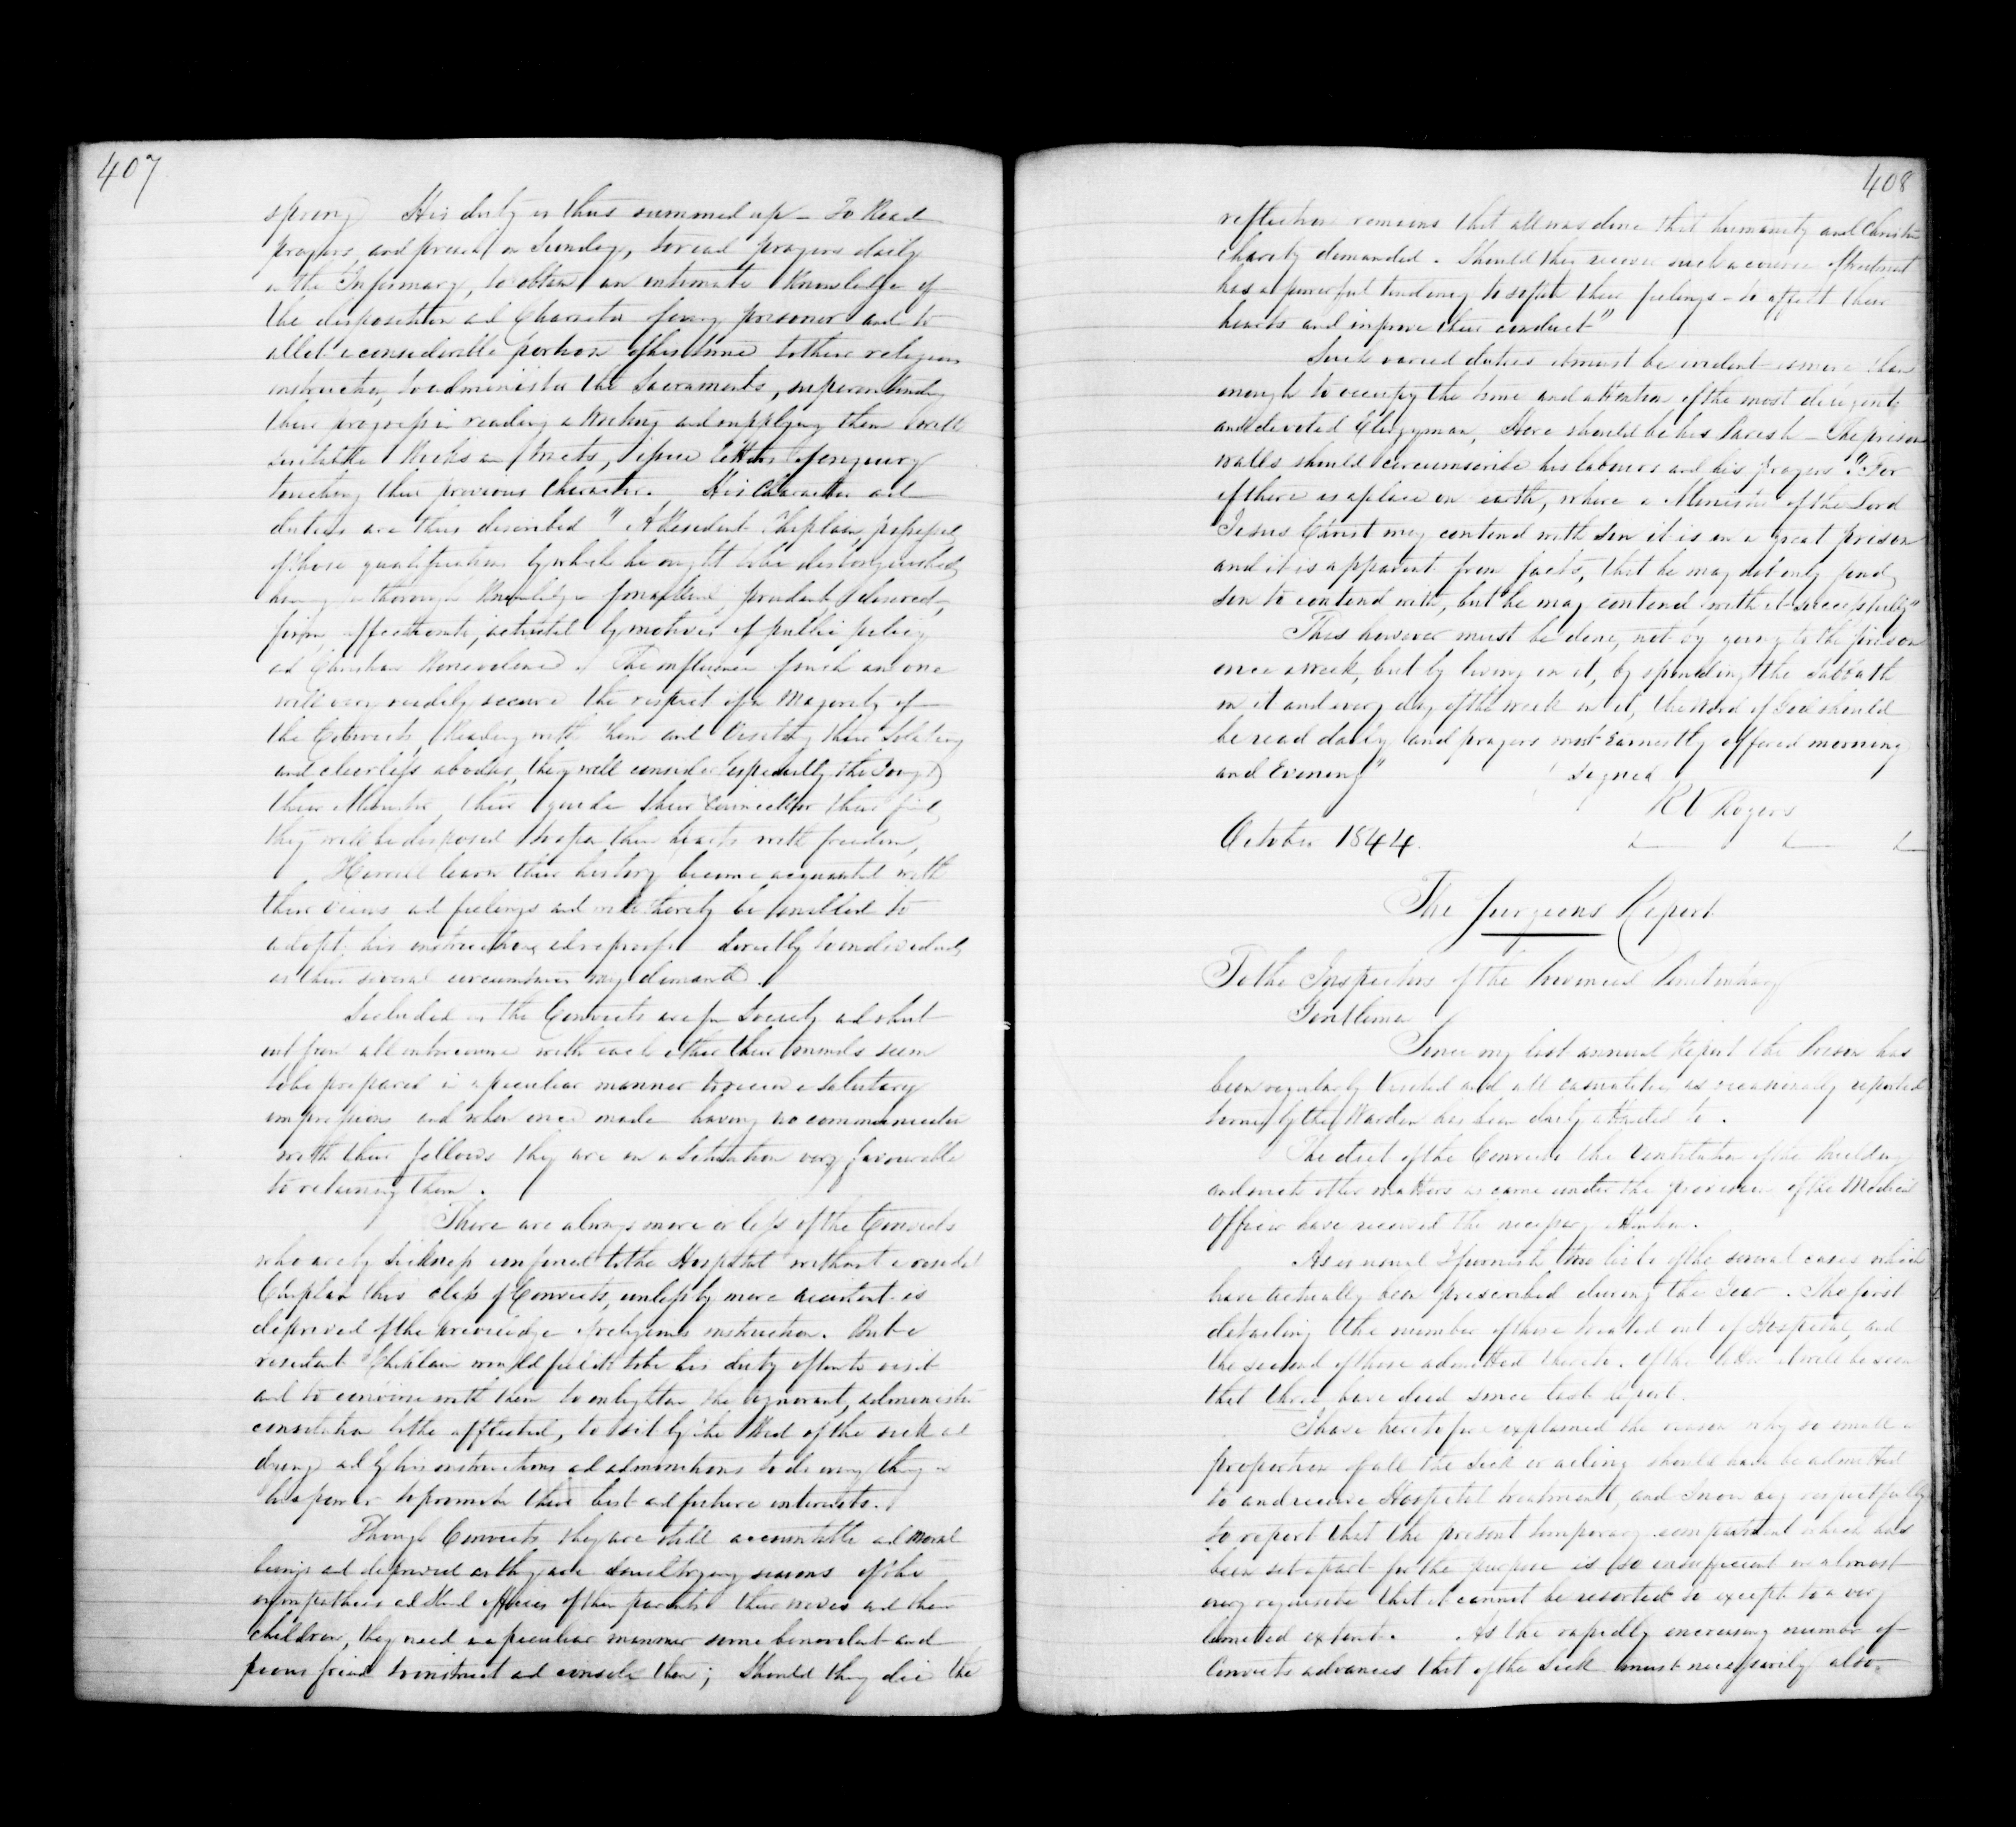 407
spring) His duty is thus summed up — To Read
prayers and preach on Sunday, to read prayers daily
in the Infirmary, to obtain an intimate Knowledge of
the disposition and Character of every prisoner and to
allot a considerable portion of his time to their religious
instruction, to administer the Sacraments, superintending
their progress in reading & Writing and supplying them with
suitable Books or tracts, issue letters of enquiry
touching their previous Character. His Character and
duties are thus described "A Resident Chaplain, possessed
of those qualifications by which he ought to be distinguished
having a thorough Knowledge prudent, discreet,
firm, affectionate, actuated by motives of public policy
and Christian Benevolence. The influence of such an one
will very readily secure the respect of a Majority of
the Convicts, Reading with them and Visiting their Solitary
and cheerless abodes, they will consider (especially the Young)
their Minister, their guide their Counsellor their friend,
they will be disposed to open their hearts with freedom,
He will learn their history become acquainted with
their views and feelings and will thereby be enabled to
adapt his instructions and reproofs directly to individuals
as their several circumstances may demand.
Secluded as the Convicts are from Society and shut
out from all intercourse with each other their minds seem
to be prepared in a peculiar manner to receive salutary
impressions and when once made having no communication
with their fellows they are in a Situation very favourable
to retaining them.
There are always more or less of the Convicts
who are by Sickness confined to the Hospital without a resident
Chaplain this class of Convicts, unless by mere accident is
deprived of the priviledge of religious instruction. But a
resident Chaplain would feel it to be his duty often to visit
and to converse with them to enlighten the ignorant, administer
consolation to the afflicted, to sit by the Bed of the sick and
dying and by his instructions and admonitions to do every thing in
his power to promote their best and future interests.
Though Convicts they are still accountable and Moral
beings and deprived as they are in such trying seasons of the
sympathies and Kind offices of their parents their wives and their
children, they need in a peculiar manner some benevolent and
pious friend to instruct and console them; Should they die the
408
reflection remains that all was done that humanity and Christian
charity demanded. Should they recover such a course of treatment
has a powerful tendency to soften their feelings — to affect their
hearts and improve their conduct"
Such varied duties it must be evident is more than
enough to occupy the time and attention of the most diligent
and devoted Clergyman, Here should be his Parish — The prison
walls should circumscribe his labours and his prayers. "For
if there is a place on earth, where a Minister of the Lord
Jesus Christ may contend with Sin it is in a great prison
and it is apparent from facts, that he may not only find
Sin to contend with, but he may contend with it successfully"
This however must be done, not by going to the prison
once a Week, but by living in it, by spending the Sabbath
in it and every day of the week in it, the Word of God should
be read daily and prayers most Earnestly offered morning
and Evening"
Signed
R V Rogers
October 1844.
The Surgeons Report
To the Inspectors of the Provincial Penitentiary
Gentlemen
Since my last annual Report the Prison has
been regularly Visited and all casualities as occasionally reported
to me by the Warden has been duly attended to.
The diet of the Convicts the Ventilation of the Building
and such other matters as came under the province of the Medical
Officer have received the necessary attention.
As is usual I furnish two lists of the several cases which
have actually been prescribed during the Year. The first
detailing the number of those treated out of Hospital, and
the second of those admitted thereto. Of the latter it will be seen
that three have died since last Report.
I have heretofore explained the reason why so small a
proportion of all the Sick or ailing should have be admitted
to and receive Hospital treatment, and I now beg respectfully
to report that the present temporary compartment which has
been set apart for the purpose is so insufficient in almost
every requisite that it cannot be resorted to except to a very
limited extent. As the rapidly encreasing number of
Convicts advances that of the Sick must necessarily also